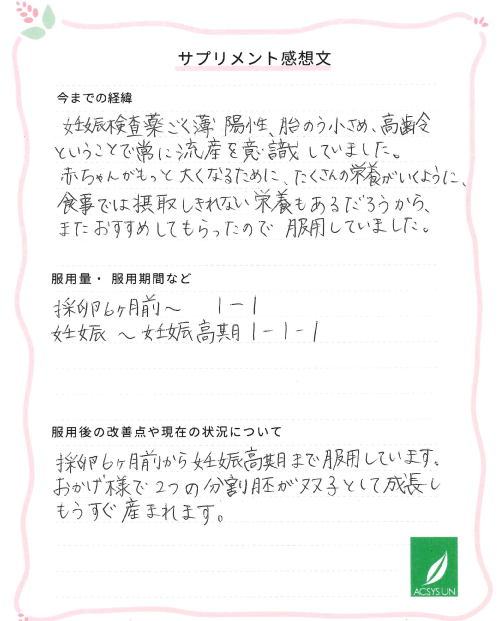 サプリメント感想文
今までの経緯
妊娠検査薬ごく薄陽性、胎のう小さめ、高齢
ということで常に流産を意識していました。
赤ちゃんがもっと大くなるために、たくさんの栄養がいくように、
食事では摂取しきれない栄養もあるだろうから、
またおすすめしてもらったので服用していました。
服用量・服用期間など
採卵6ヶ月前〜 1-1
妊娠 〜妊娠高期 1-1-1
服用後の改善点や現在の状況について
採卵6ヶ月前から妊娠高期まで服用しています。
おかげ様で2つの分割胚が双子として成長し
もうすぐ産まれます。
ACSYS UN